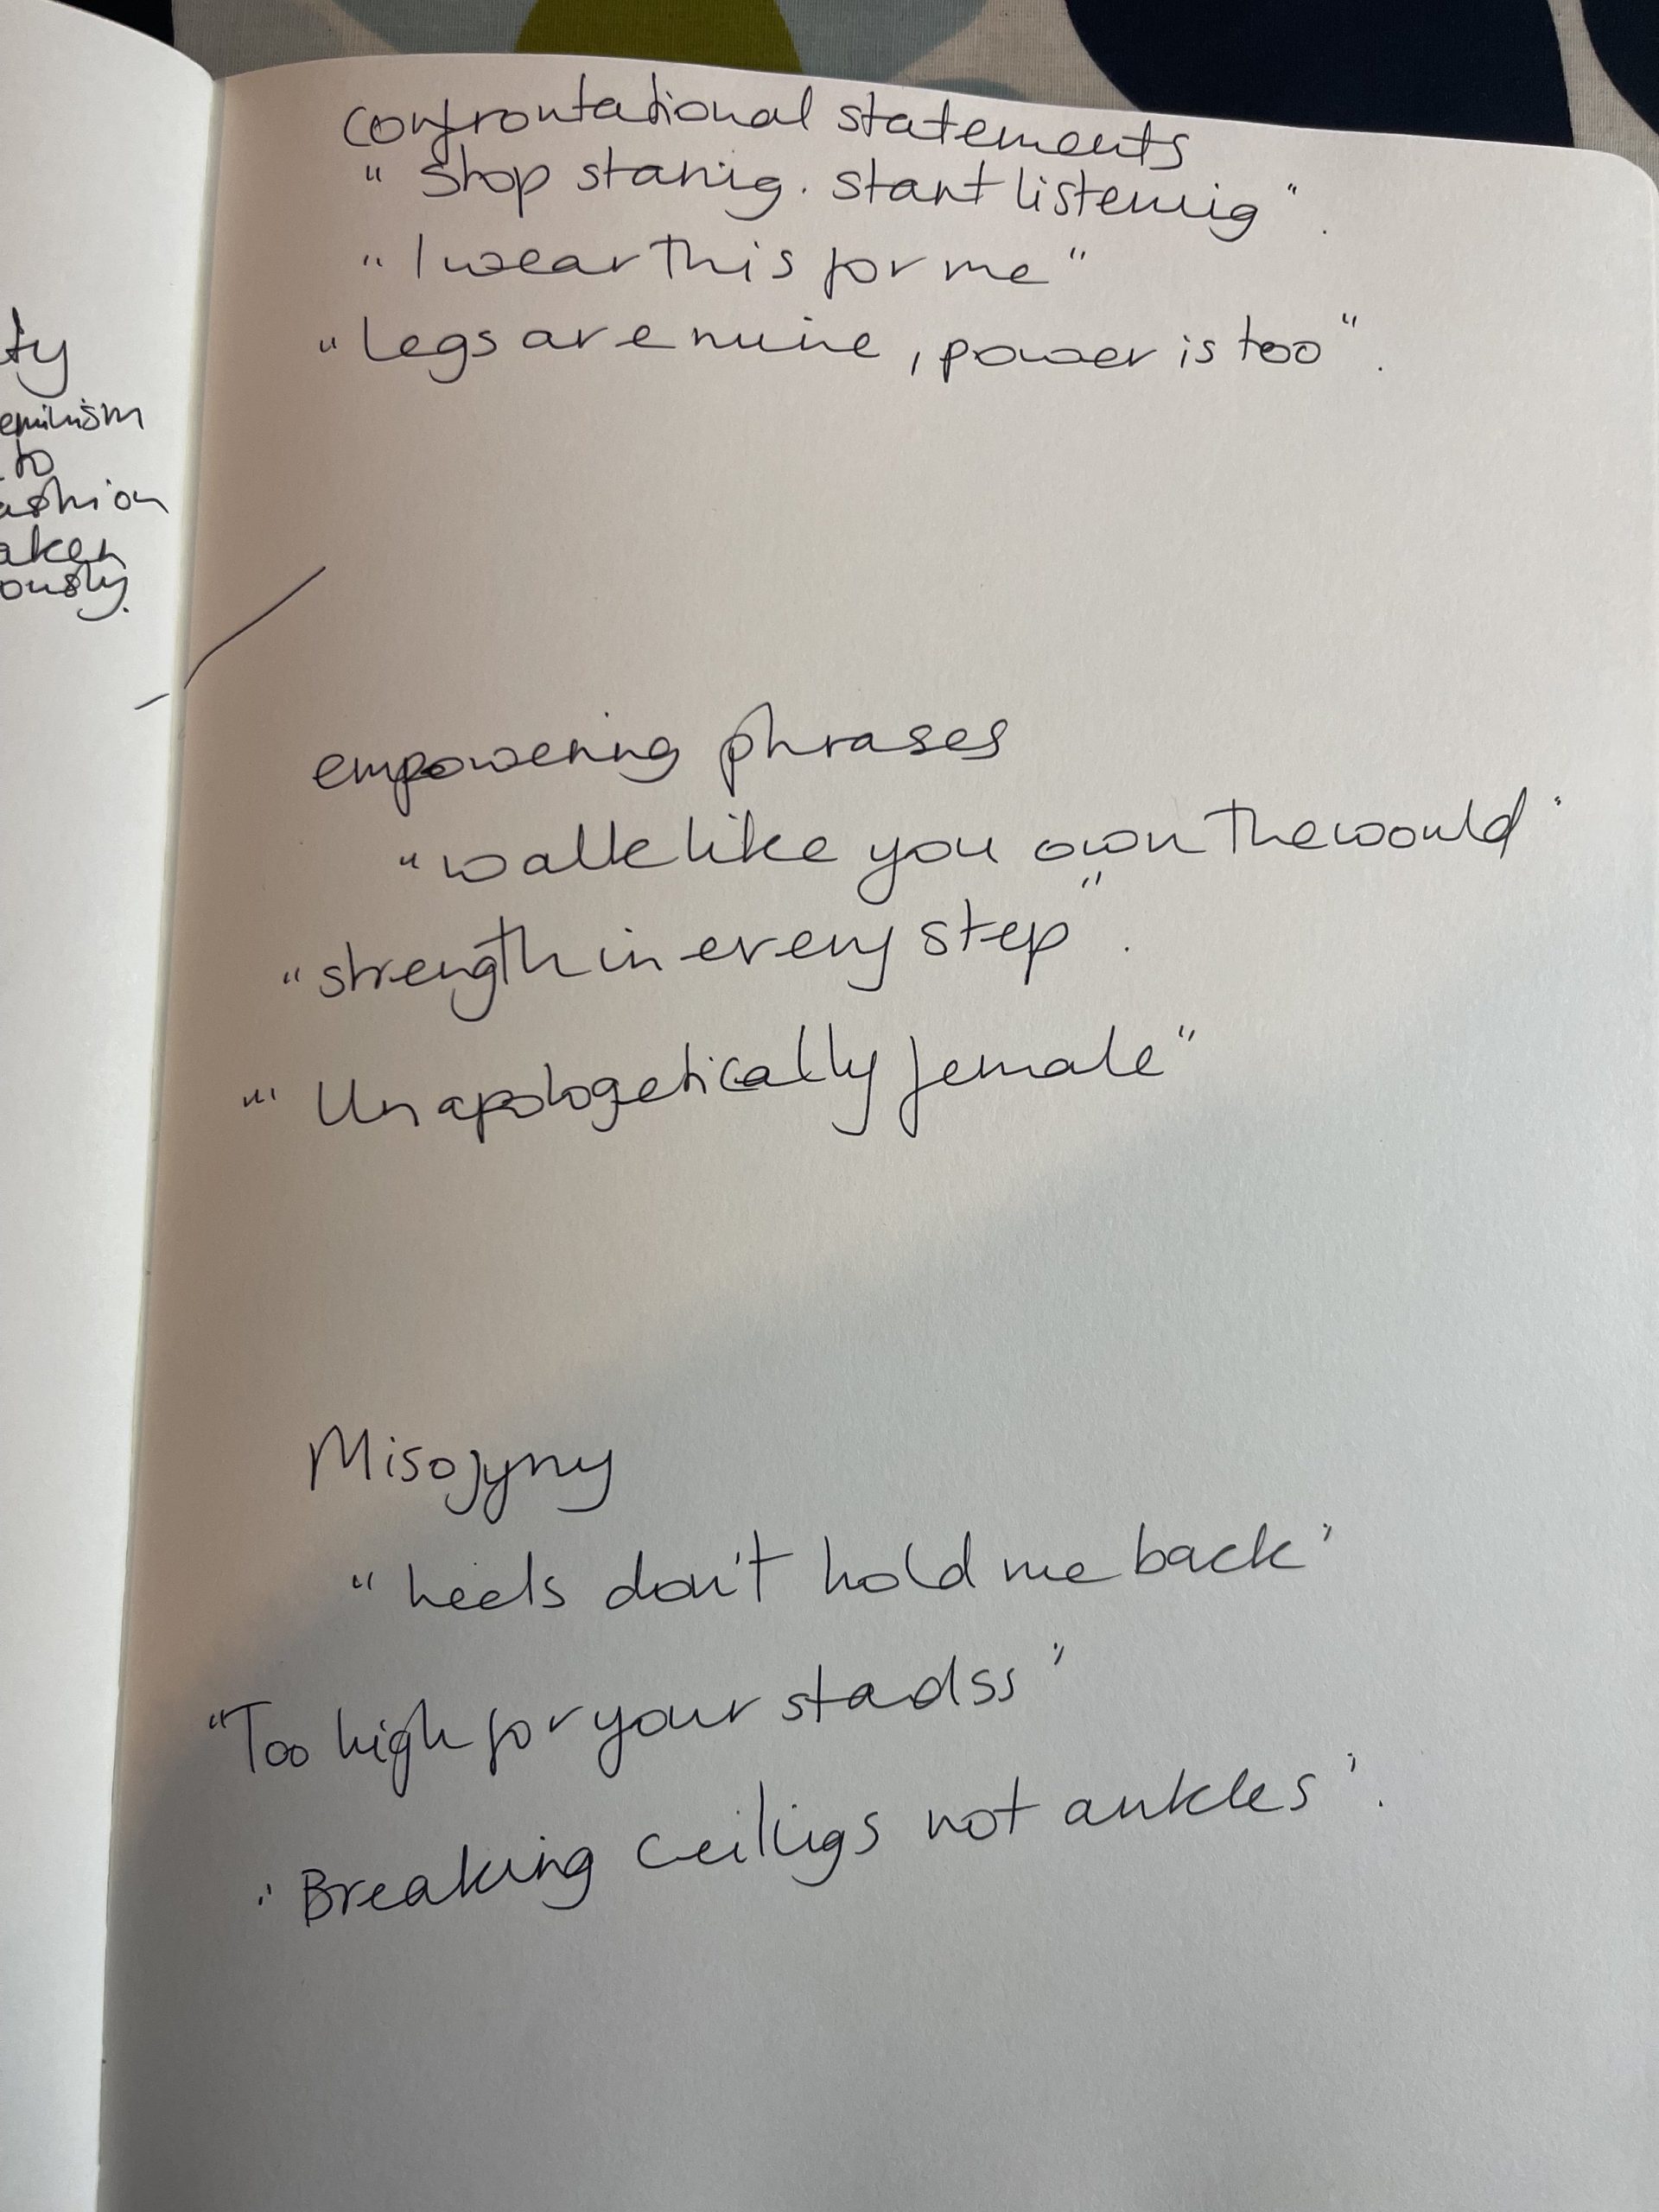 confrontational statements
"Stop staring. Start listening".
"I wear this for me"
"Legs are mine, power is too".
empowering phrases
"walk like you own the would"
"strength in every step".
"Unapologetically female"
Misojyny
"heels don't hold me back"
"Too high for your stadss"
"Breaking ceiligs not ankles".
ty
eminism
to
ashion
aken
ously.